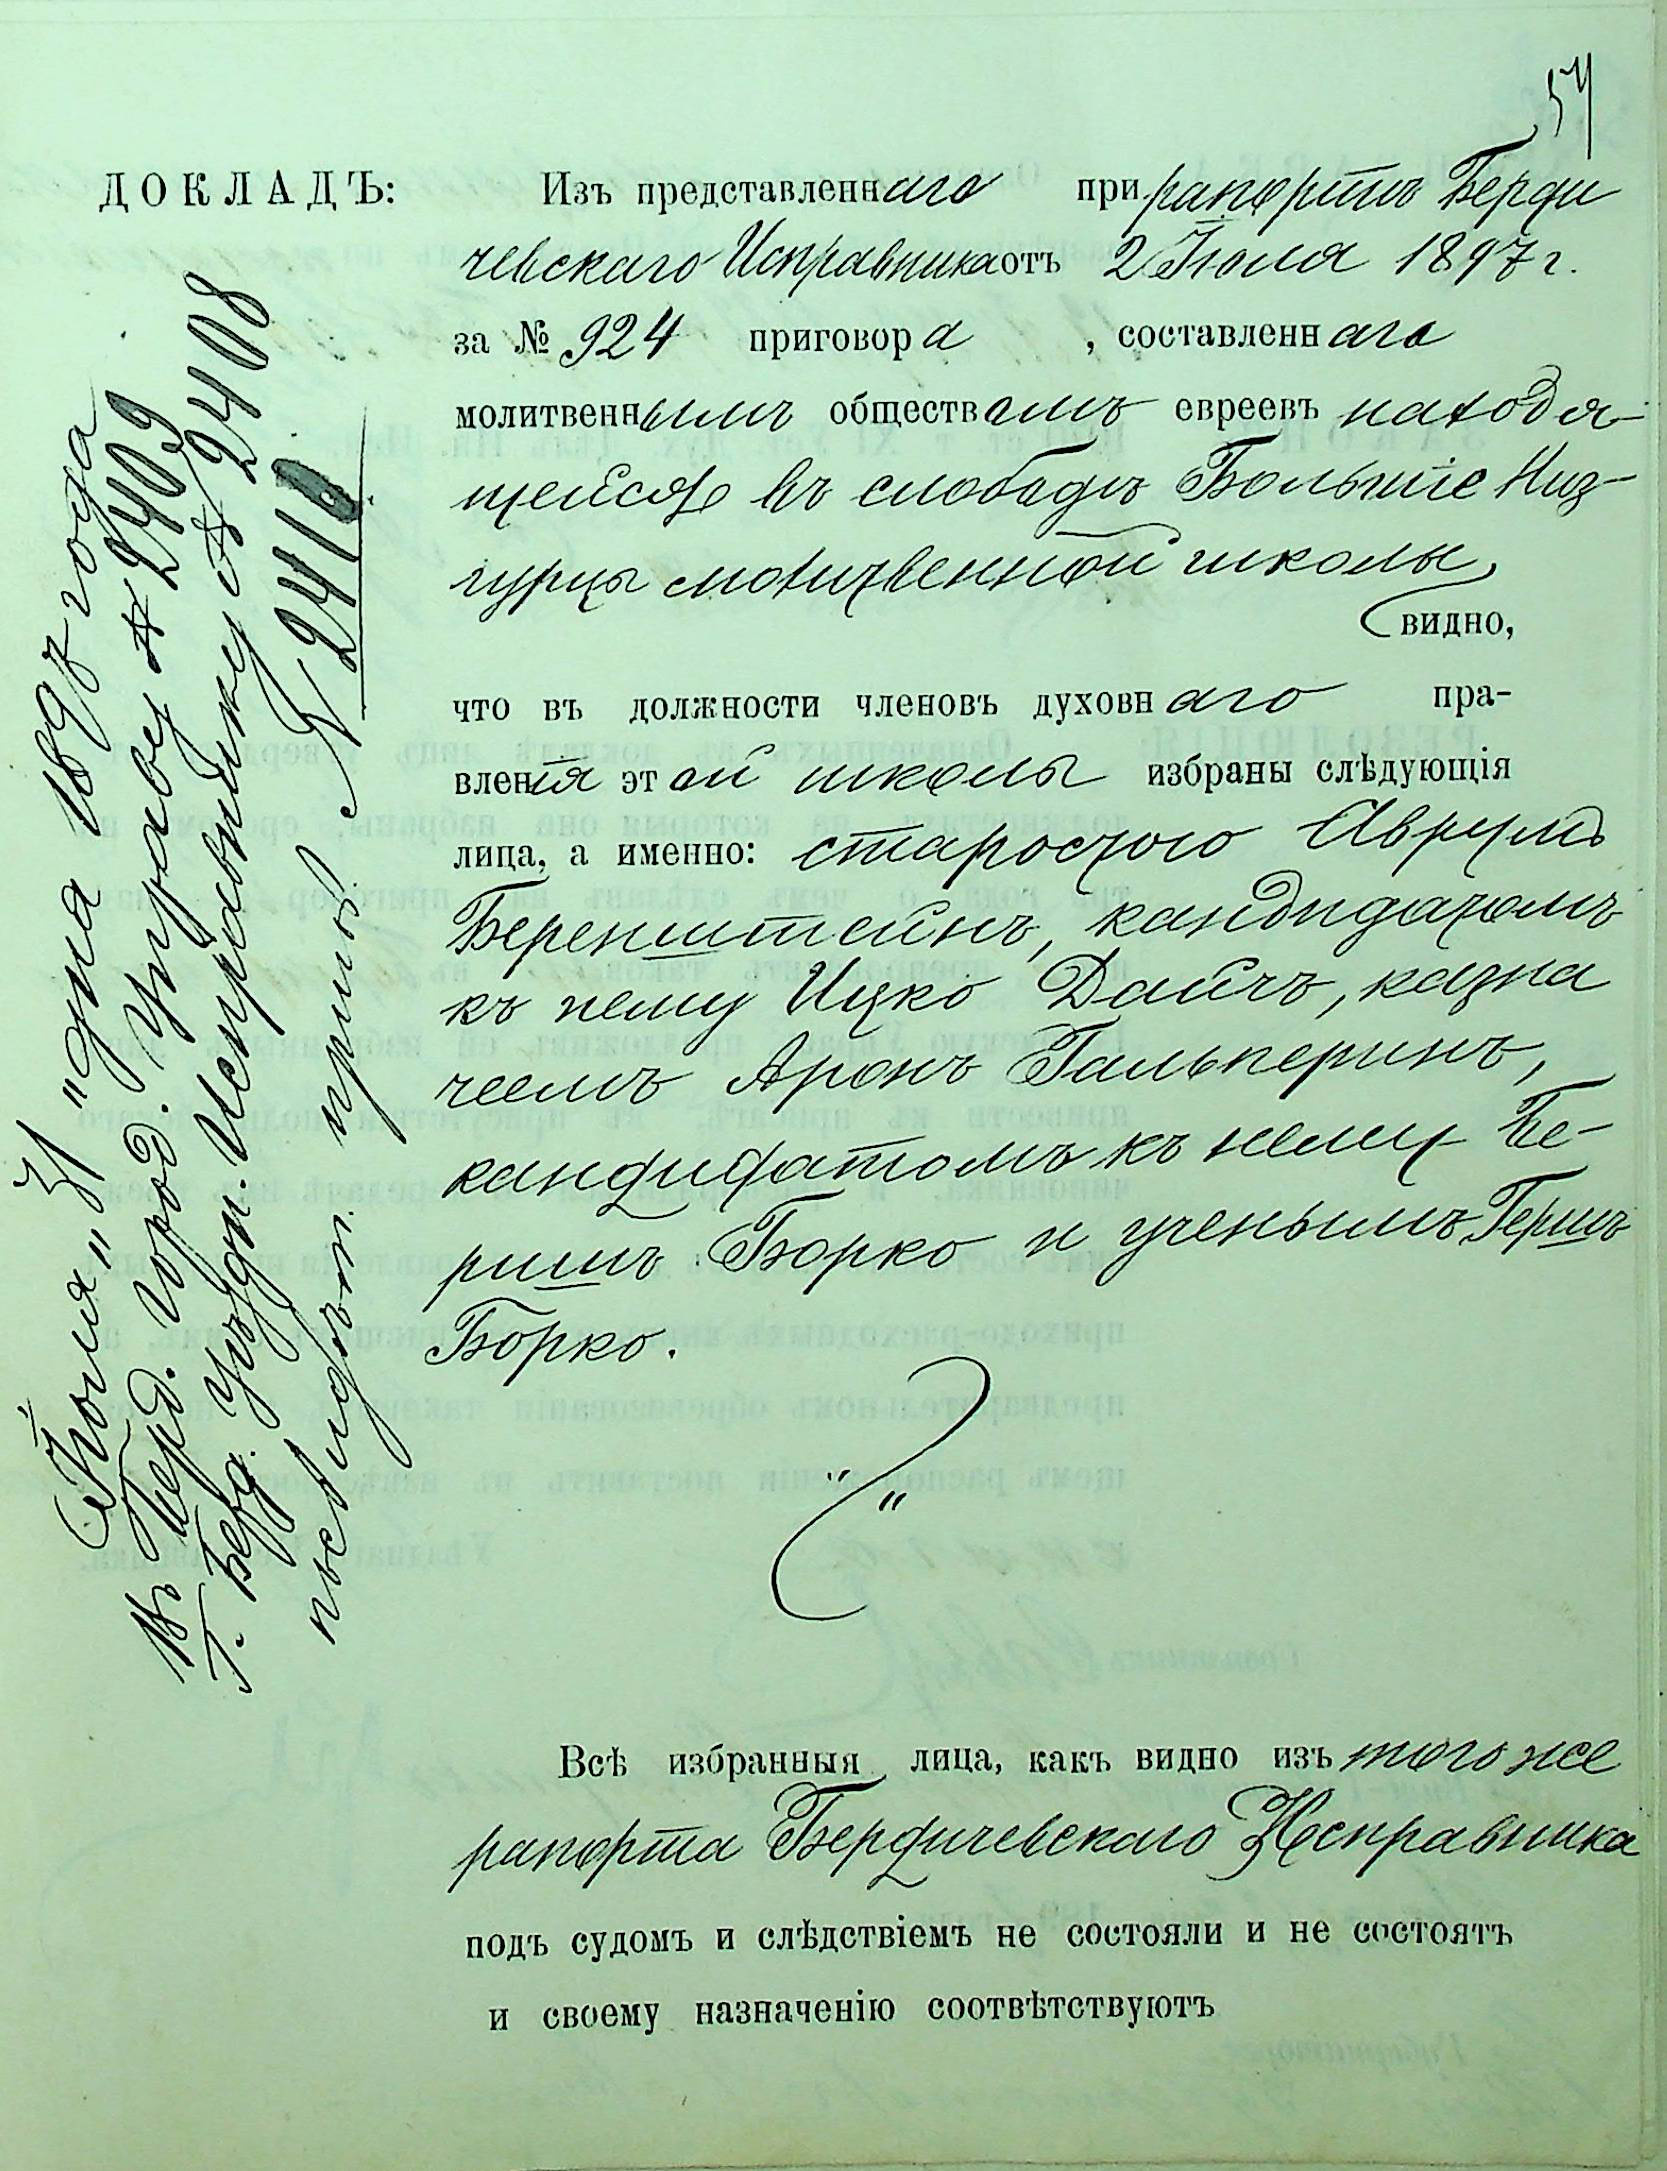 54
ДОКЛАДЪ: Изъ представленнаго при рапортѣ Берди
чевскаго Исправника отъ 2 Іюля 1897 г.
за № 924 приговора, составленнаго
молитвеннымъ обществомъ евреевъ находя-
щейся въ слободѣ Большіе Низ-
гурцы молитвенной школы,
видно,
что въ должности членовъ духовнаго пра-
вленія этой школы избраны слѣдующія
лица, а именно: старостою Аврумъ
Беренштейнъ, кандидатомъ
къ нему Ицко Дайчъ, казна
чеемъ Аронъ Гальперинъ,
кандидатомъ къ нему Бе-
ришъ Борко и ученымъ Гершъ
Борко.
Всѣ избранныя лица, какъ видно изъ того же
рапорта Бердичевскаго Исправника
подъ судомъ и слѣдствіемъ не состояли и не состоятъ
и своему назначенію соотвѣтствуютъ
Іюля "31" дня 1897 года
Въ Берд. Город. Управу № 2409
Г. Берд. Уѣздн. Исправнику № 2408
№ 2410